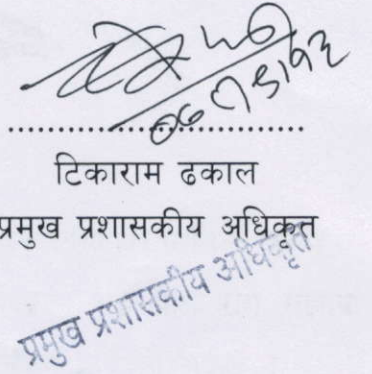 ..............................
टिकाराम ढकाल
प्रमुख प्रशासकीय अधिकृत
प्रमुख प्रशासकीय अधिकृत